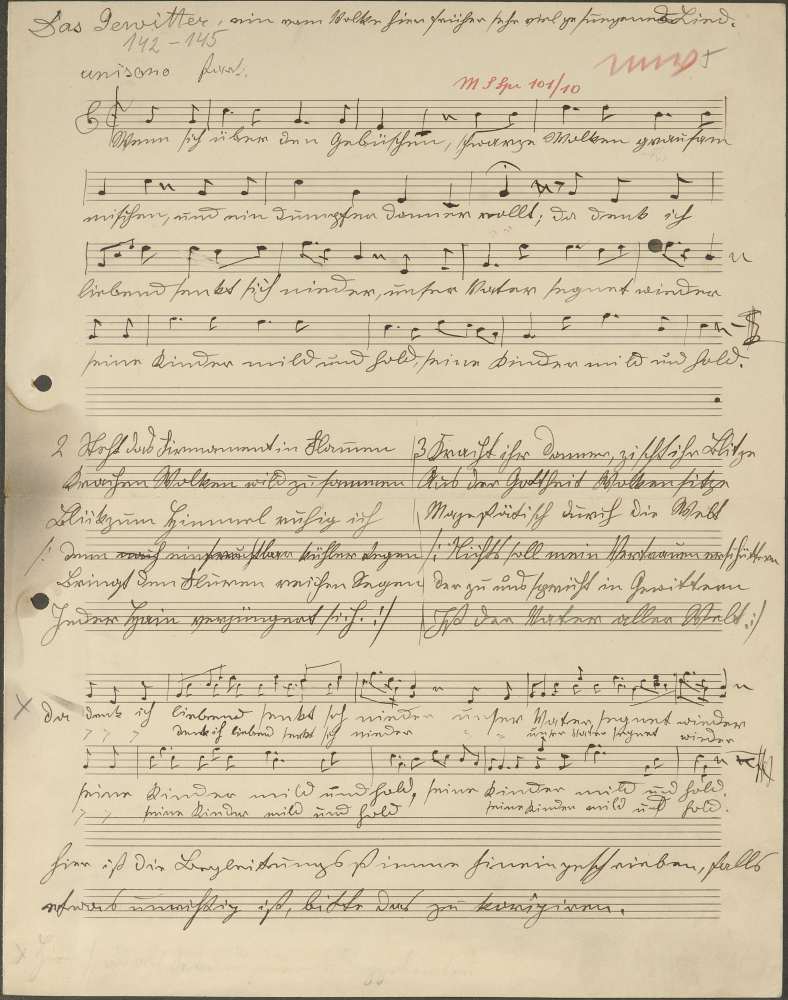 Das Gewitter, ein vom Volke hier früher sehr viel gesungenes Lied.
142 - 145
unisono
M S Spr 101/10
Wenn sich über den Gebüschen, schwarze Wolken grausam
mischen, und ein dumpfer Donner rollt; da denk ich
liebend senkt sich nieder, unser Vater segnet wieder
seine Kinder mild und hold, seine Kinder mild und hold.
2 Steht das Firmament in Flammen
Krachen Wolken wild zusammen
Blick zum Himmel ruhig ich
/: denn ein kühler Regen
Bringt den Fluren reichen Segen
Jeder Hain verjüngert sich. :/
3 Kracht ihr Donner, zischt ihr Blitze
Aus der Gottheit Wolkensitze
Majestätisch durch die Welt
/: Nichts soll mein Vertrauen erschüttern
Der zu uns spricht in Gewittern
Ist der Vater aller Welt. :/
x da denk ich liebend senkt sich nieder unser Vater, segnet wieder
denk ich liebend senkt sich nieder unser Vater segnet wieder
seine Kinder mild und hold, seine Kinder mild und hold.
seine Kinder mild und hold seine Kinder mild und hold.
hier ist die Begleitungsstimme hineingeschrieben, falls
etwas unrichtig ist, bitte das zu korigiren.